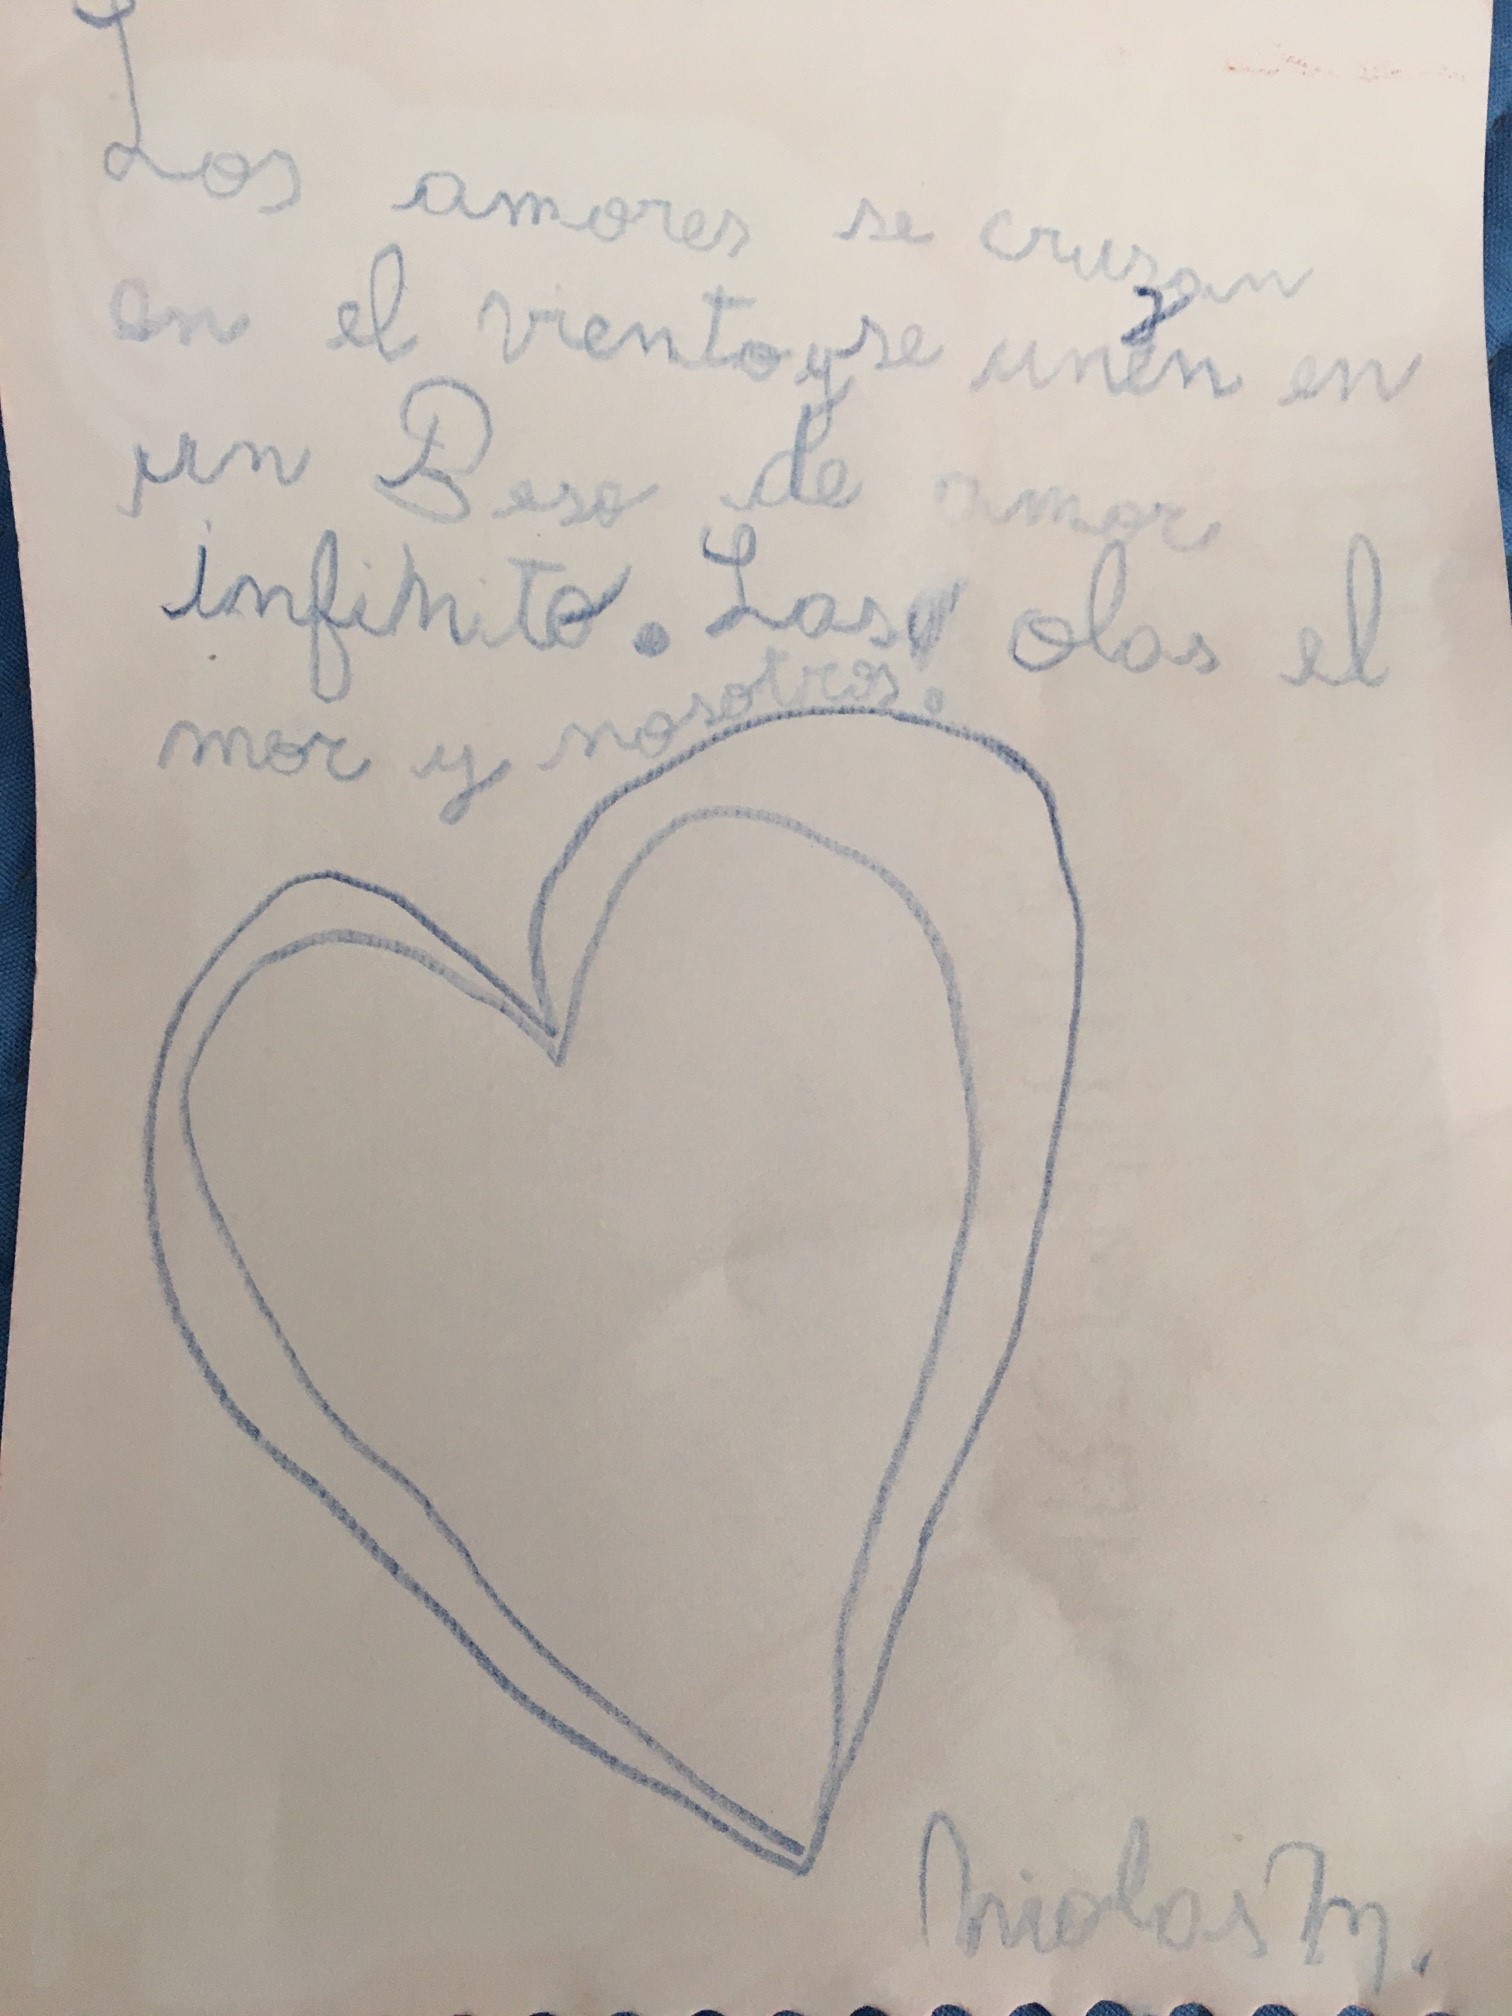 Los amores se cruzan
en el viento y se unen en
un Beso de amor
infinito. Las olas el
mar y nosotros.
Nicolas M.